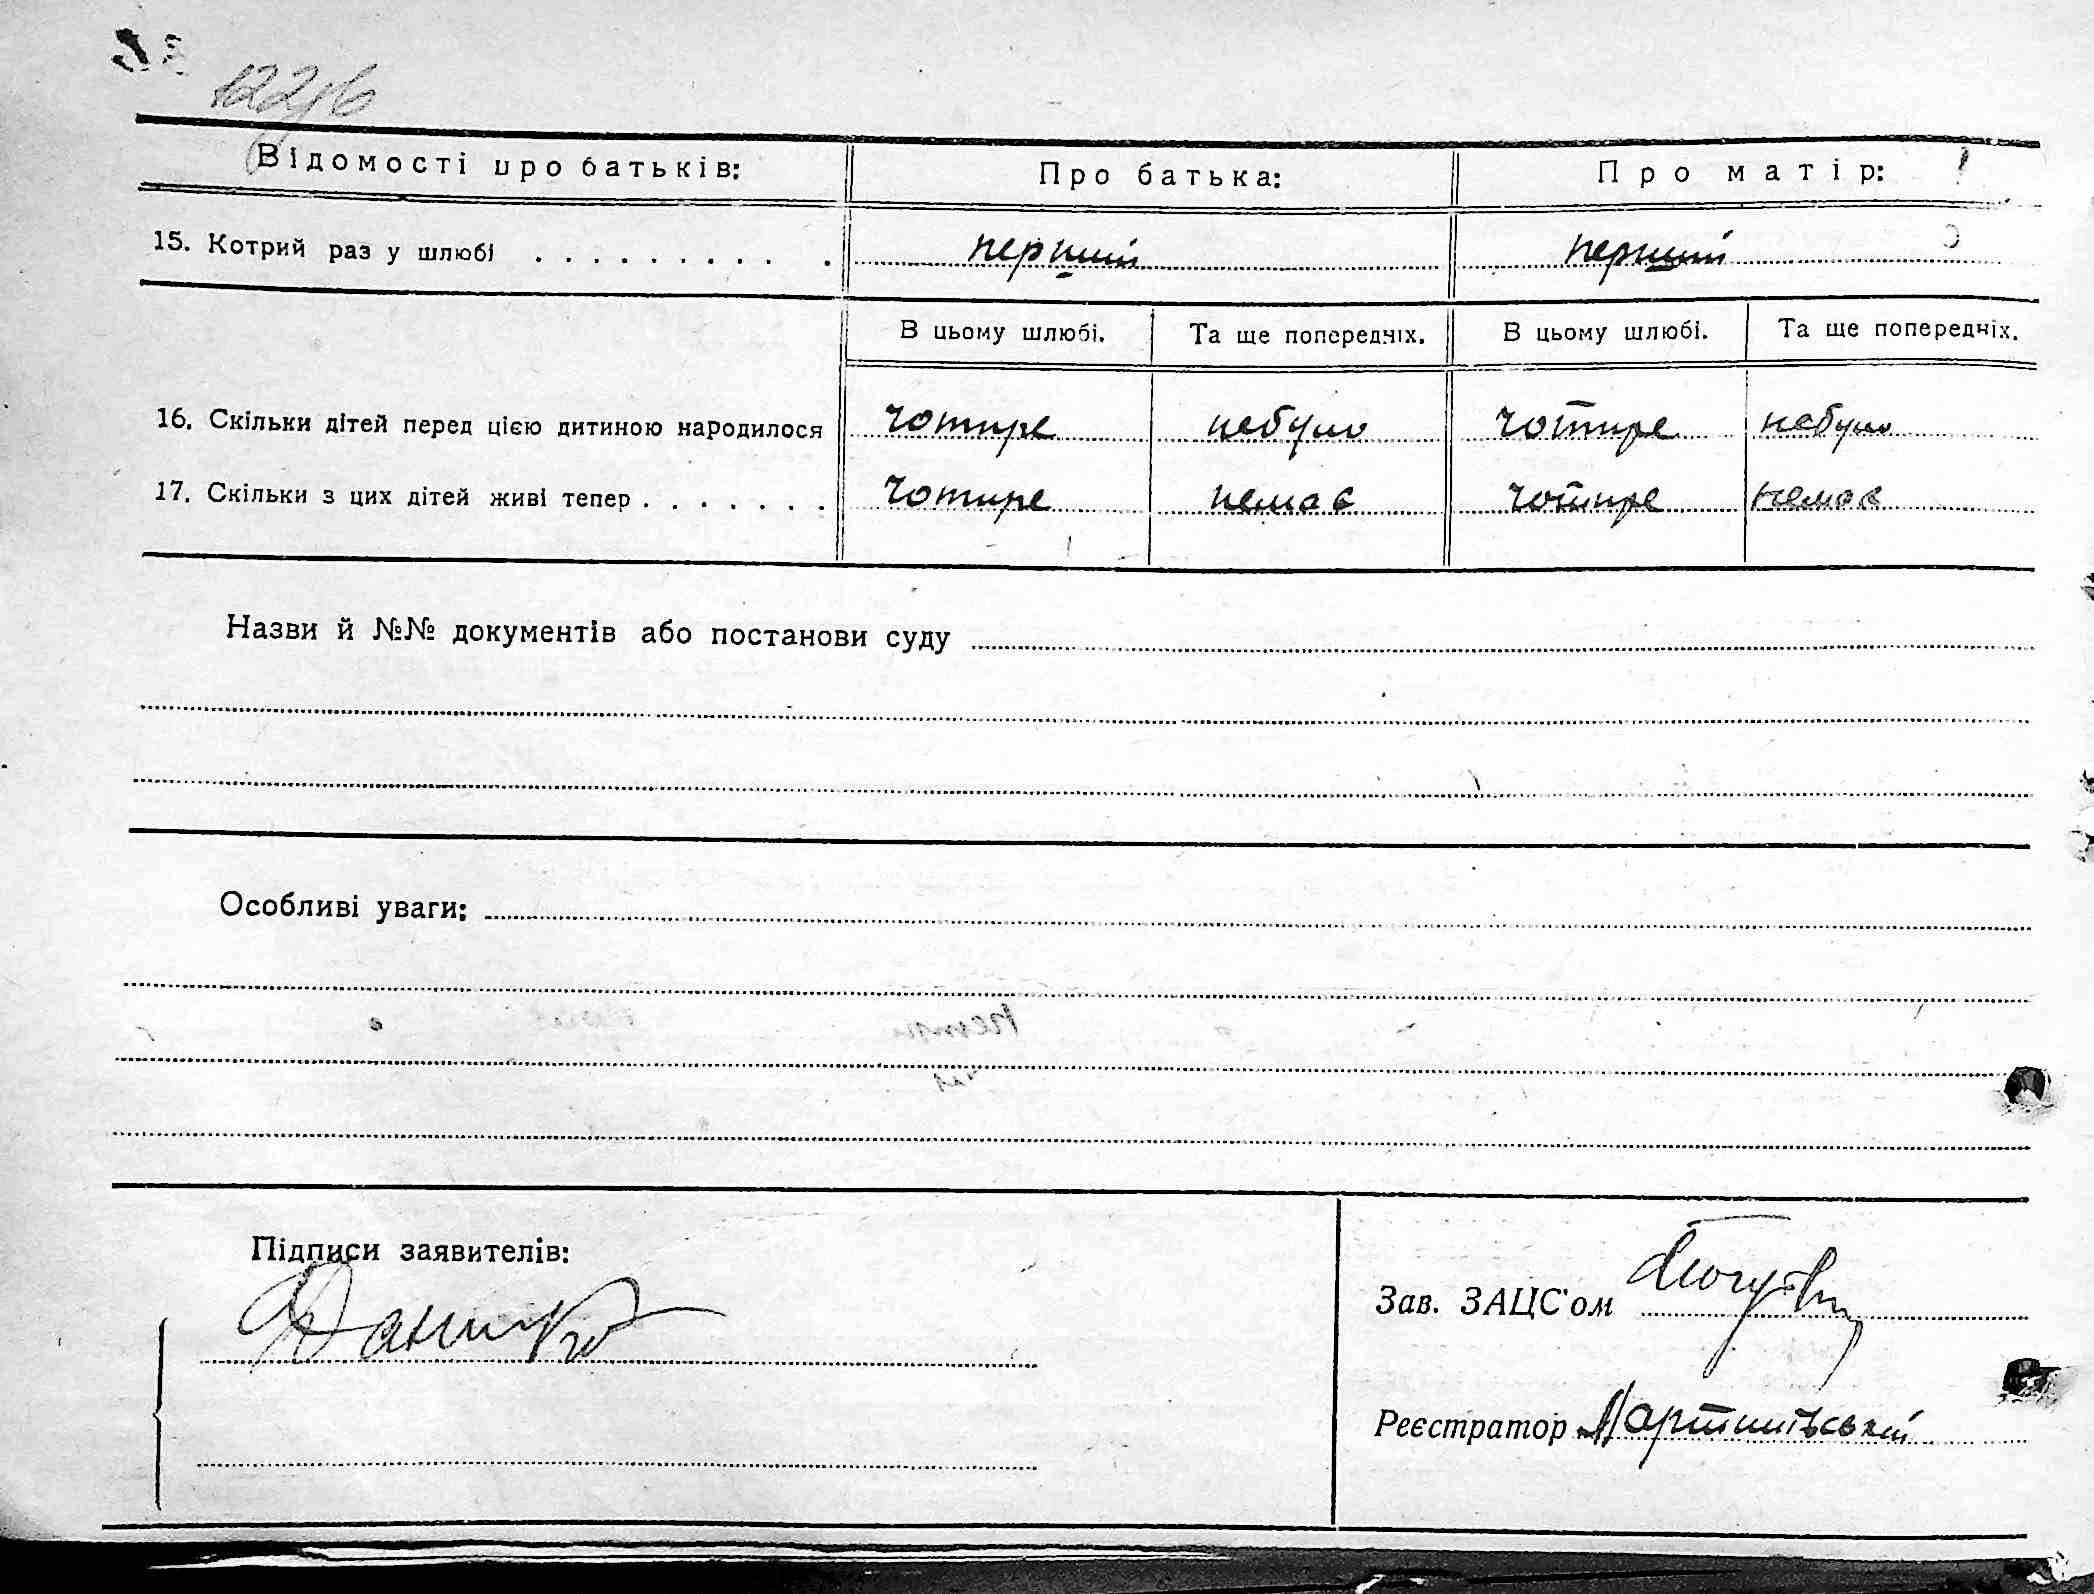 Відомості про батьків: Про батька: Про матір:
15. Котрий раз у шлюбі . . . . . . . . . . перший перший
В цьому шлюбі. Та ще попередніх. В цьому шлюбі. Та ще попередніх.
16. Скільки дітей перед цією дитиною народилося чотире небуло чотире небуло
17. Скільки з цих дітей живі тепер . . . . . . . чотире немає чотире немає
Назви й №№ документів або постанови суду
Особливі уваги:
Підписи заявителів:
Зав. ЗАЦС'ом
Реєстратор